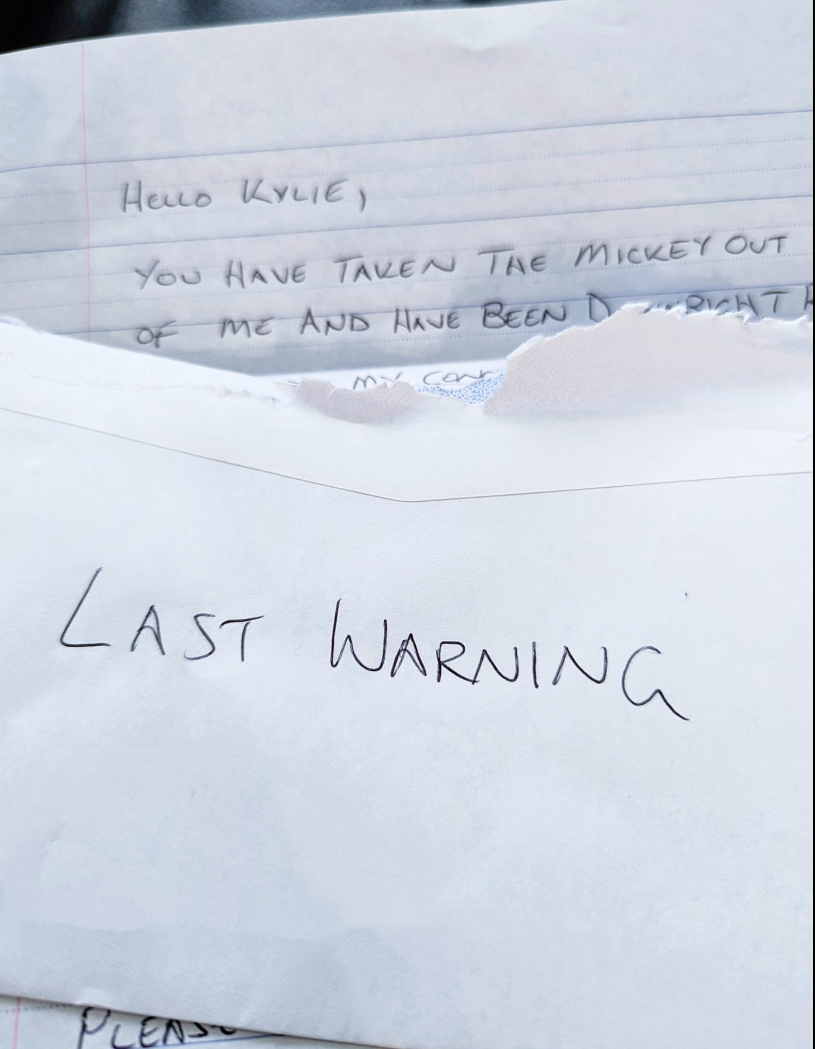 Hello KYLIE,
YOU HAVE TAKEN THE MICKEY OUT
OF ME AND HAVE BEEN
MY
LAST WARNING